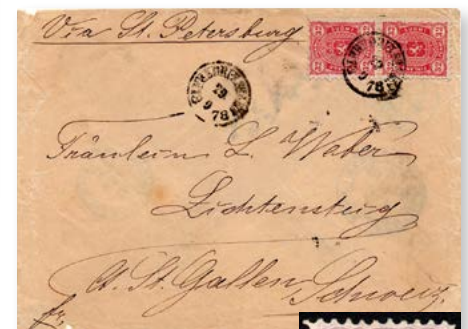 Via St. Petersburg
29
9
78
9
78
Fräulein L. Weber
Lichtensteig
Ct. St. Gallen
Schweiz.
fr.